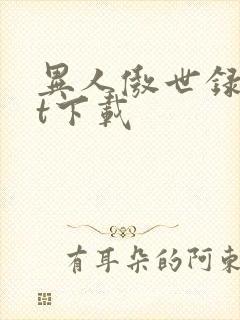 異人傲世録
t下載
有耳朵的阿東